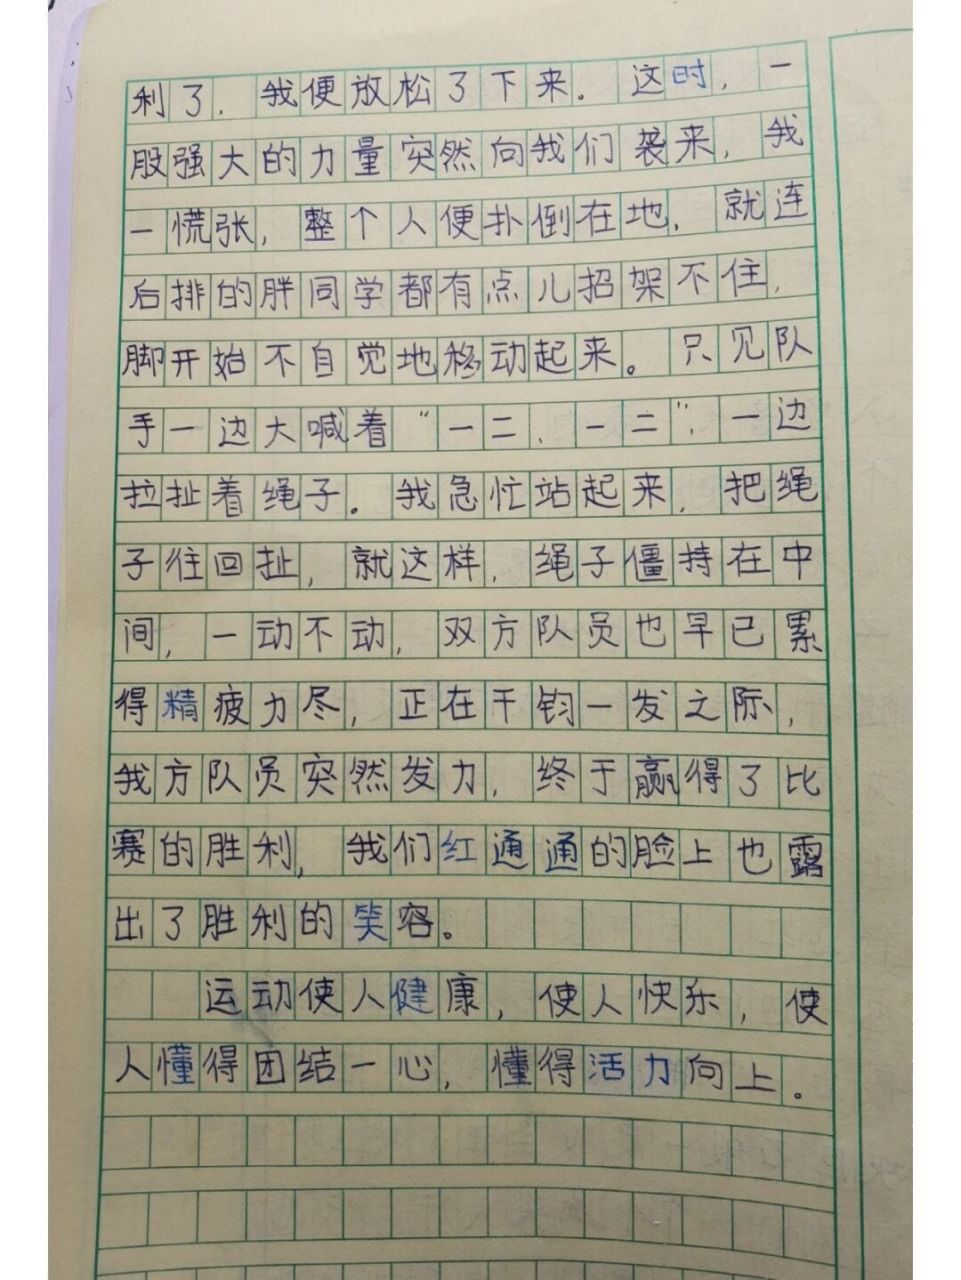 利了，我便放松了下来。这时，一
股强大的力量突然向我们袭来，我
一慌张，整个人便扑倒在地，就连
后排的胖同学都有点儿招架不住，
脚开始不自觉地移动起来。只见队
手一边大喊着“一二、一二”，一边
拉扯着绳子。我急忙站起来，把绳
子往回扯，就这样，绳子僵持在中
间，一动不动，双方队员也早已累
得精疲力尽，正在千钧一发之际，
我方队员突然发力，终于赢得了比
赛的胜利，我们红通通的脸上也露
出了胜利的笑容。
运动使人健康，使人快乐，使
人懂得团结一心，懂得活力向上。